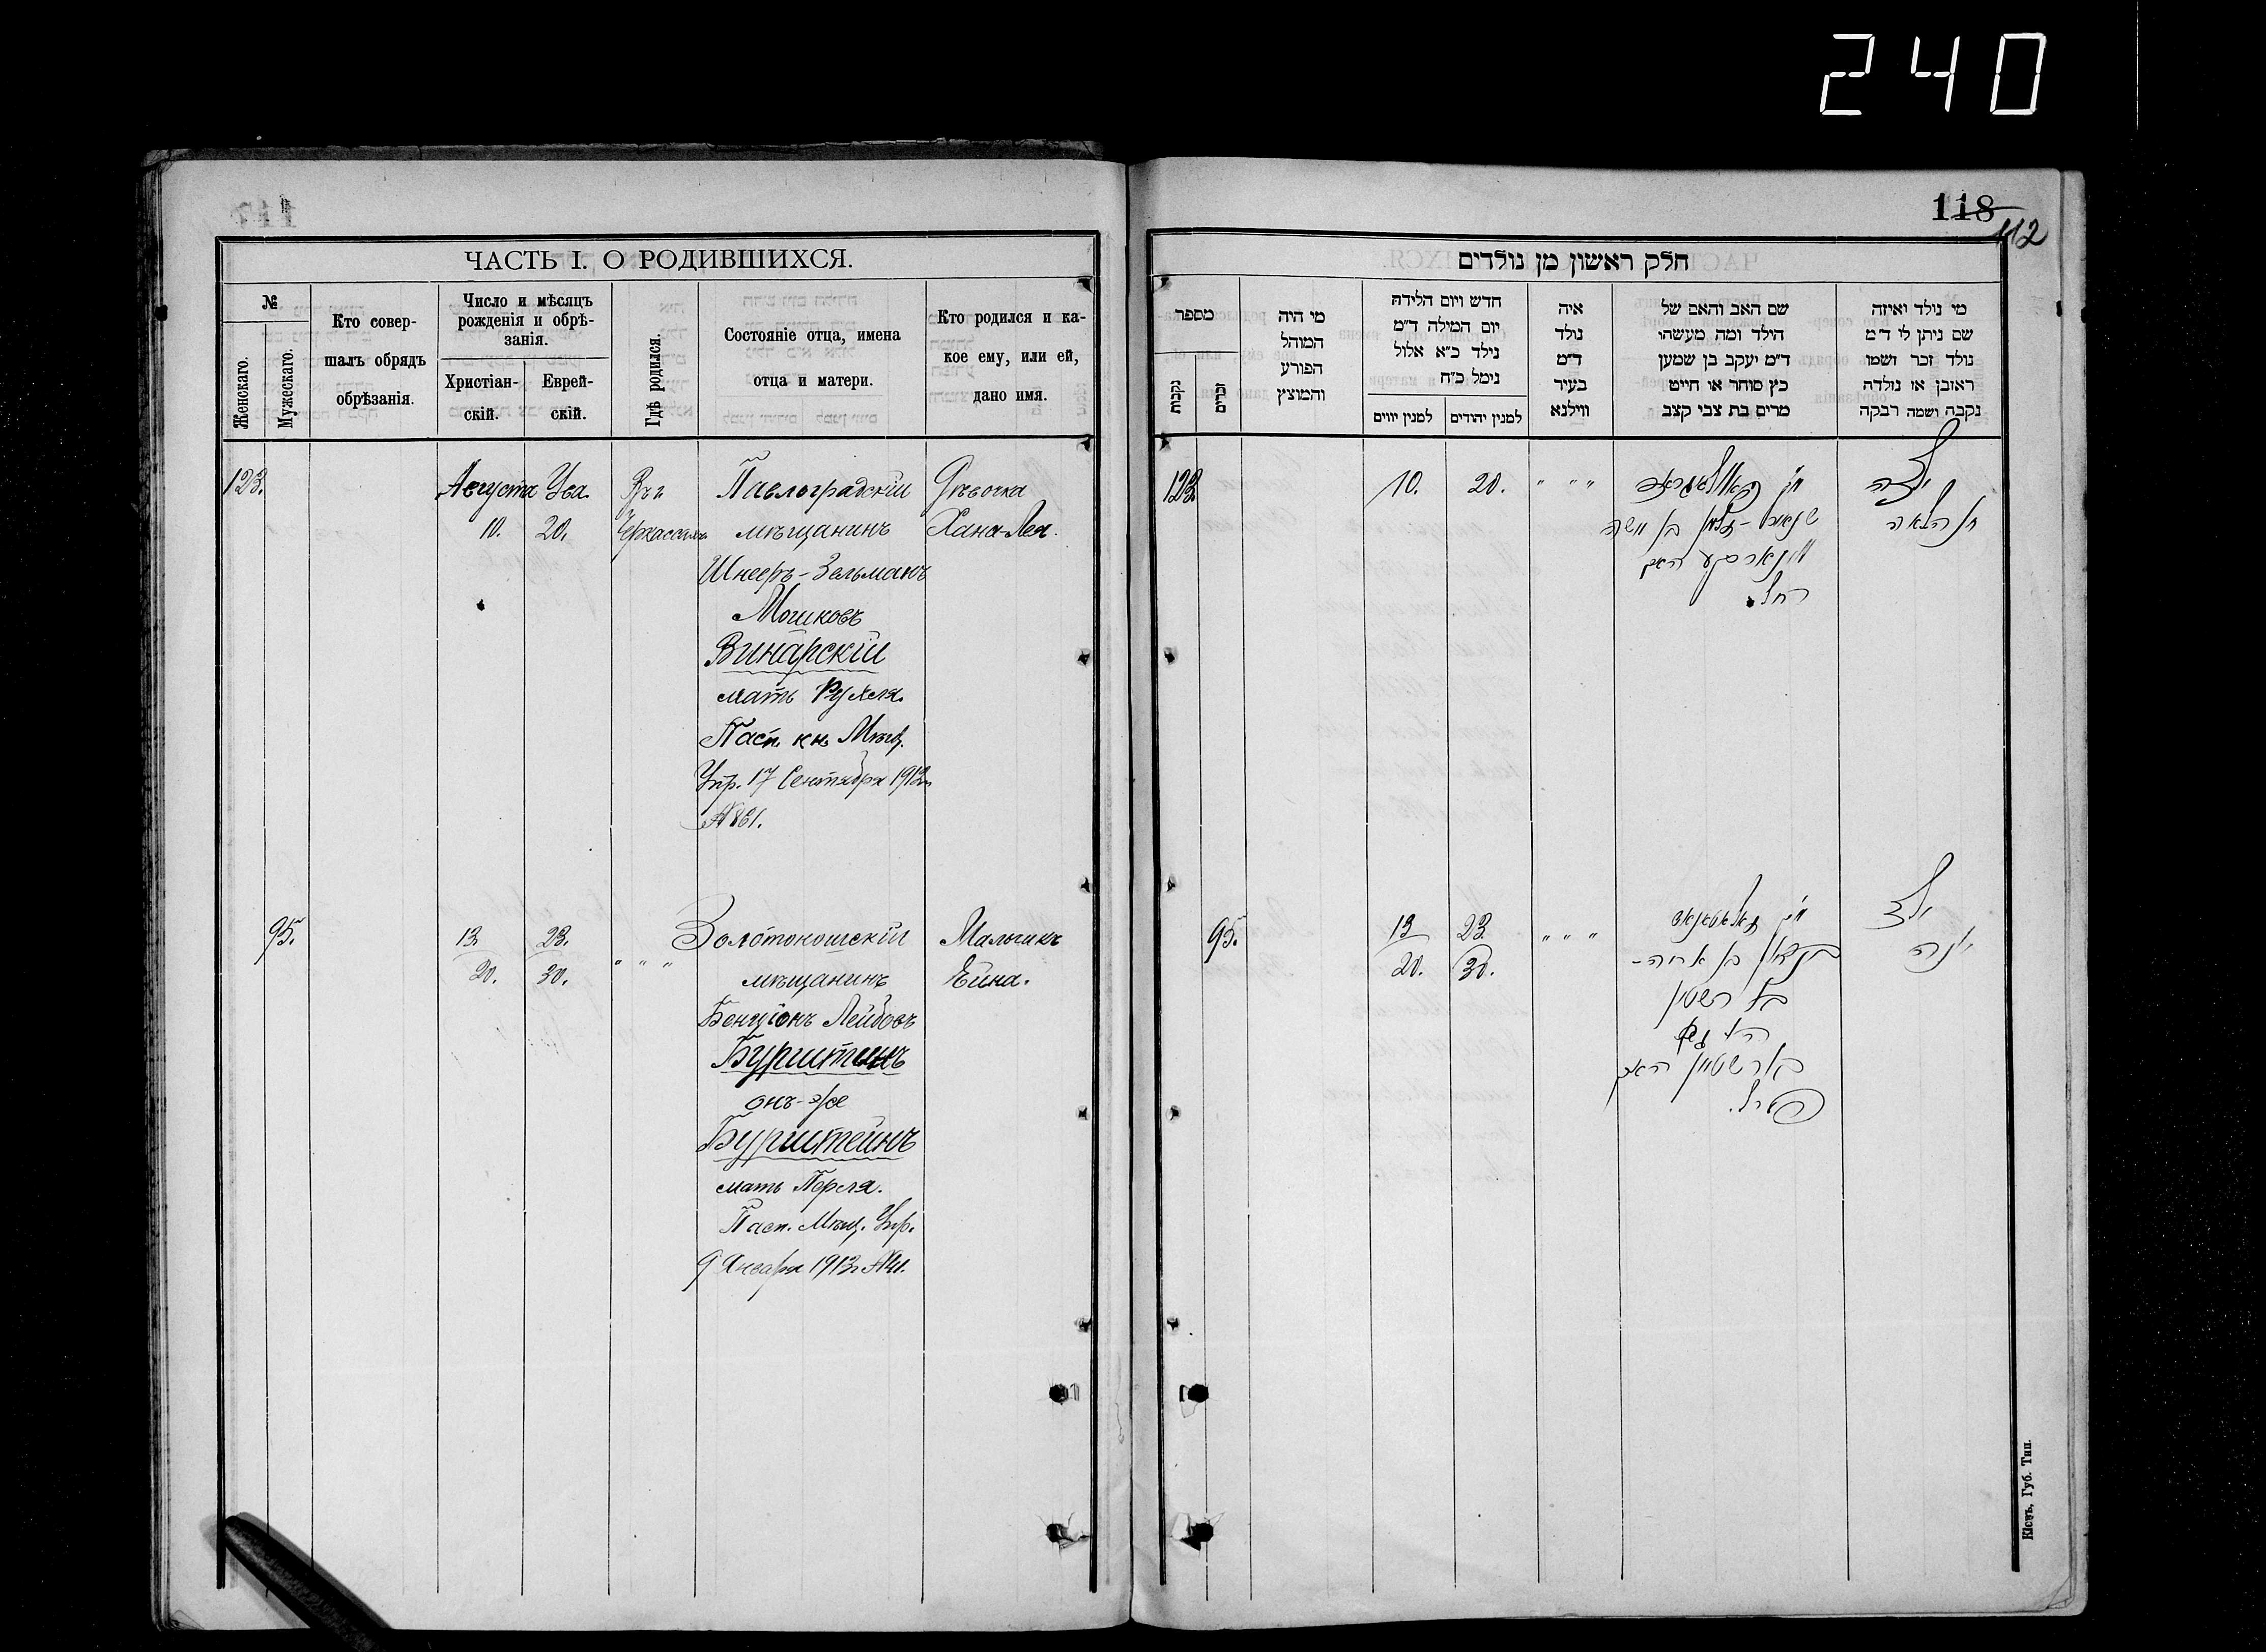 240
118
112
ЧАСТЬ I. О РОДИВШИХСЯ.
№
Женскаго.
Мужескаго.
Кто совер-
шалъ обрядъ
обрѣзанія.
Число и мѣсяцъ
рожденія и обрѣ-
занія.
Христіан-
скій.
Еврей-
скій.
Гдѣ родился.
Состояніе отца, имена
отца и матери.
Кто родился и ка-
кое ему, или ей,
дано имя.
123.
Августа
10.
20.
Черкассахъ
Павлоградскій
мѣщанинъ
Шнееръ-Зельманъ
Мошковъ
Винарскій
мать Рухля.
Пасп. кн. Мѣщ.
Упр. 17 Сентября 1912г.
№861.
Дѣвочка
Хана-Лея.
95.
13
20.
23.
30.
" " "
Золотоношскій
мѣщанинъ
Бенціонъ Лейбовъ
Бурштинъ
онъ-же
Бурштейнъ
мать Перля.
Пасп. Мѣщ. Упр.
9 Января 1913г.
Мальчикъ
Ейна.
חלק ראשון מן נולדים
מספר
נקבות
זכרים
מי היה
המוהל
הפורע
והמוצץ
חדש ויום הלידה
יום המילה ד״מ
נילד כ״א אלול
נימל כ״ח
למנין יווים
למנין יהודים
איה
נולד
ד״מ
בעיר
ווילנא
שם האב והאם של
הילד ומה מעשהו
ד״מ יעקב בן שמען
כץ סוחר או חייט
מרים בת צבי קצב
מי נולד ואיזה
שם ניתן לו ד״מ
נולד זכר ושמו
ראובן או נולדה
נקבה ושמה רבקה
123.
10.
20.
" " "
שניאור-זלמן בן משה
ווינארסקי האם
רחל.
ילדה
חנה לאה
95.
13
20.
23.
30.
" " "
בן ציון בן אריה-
בורשטין
בורשטיין האם
פערל.
ילד
יונה
Кіевъ, Губ. Тип.